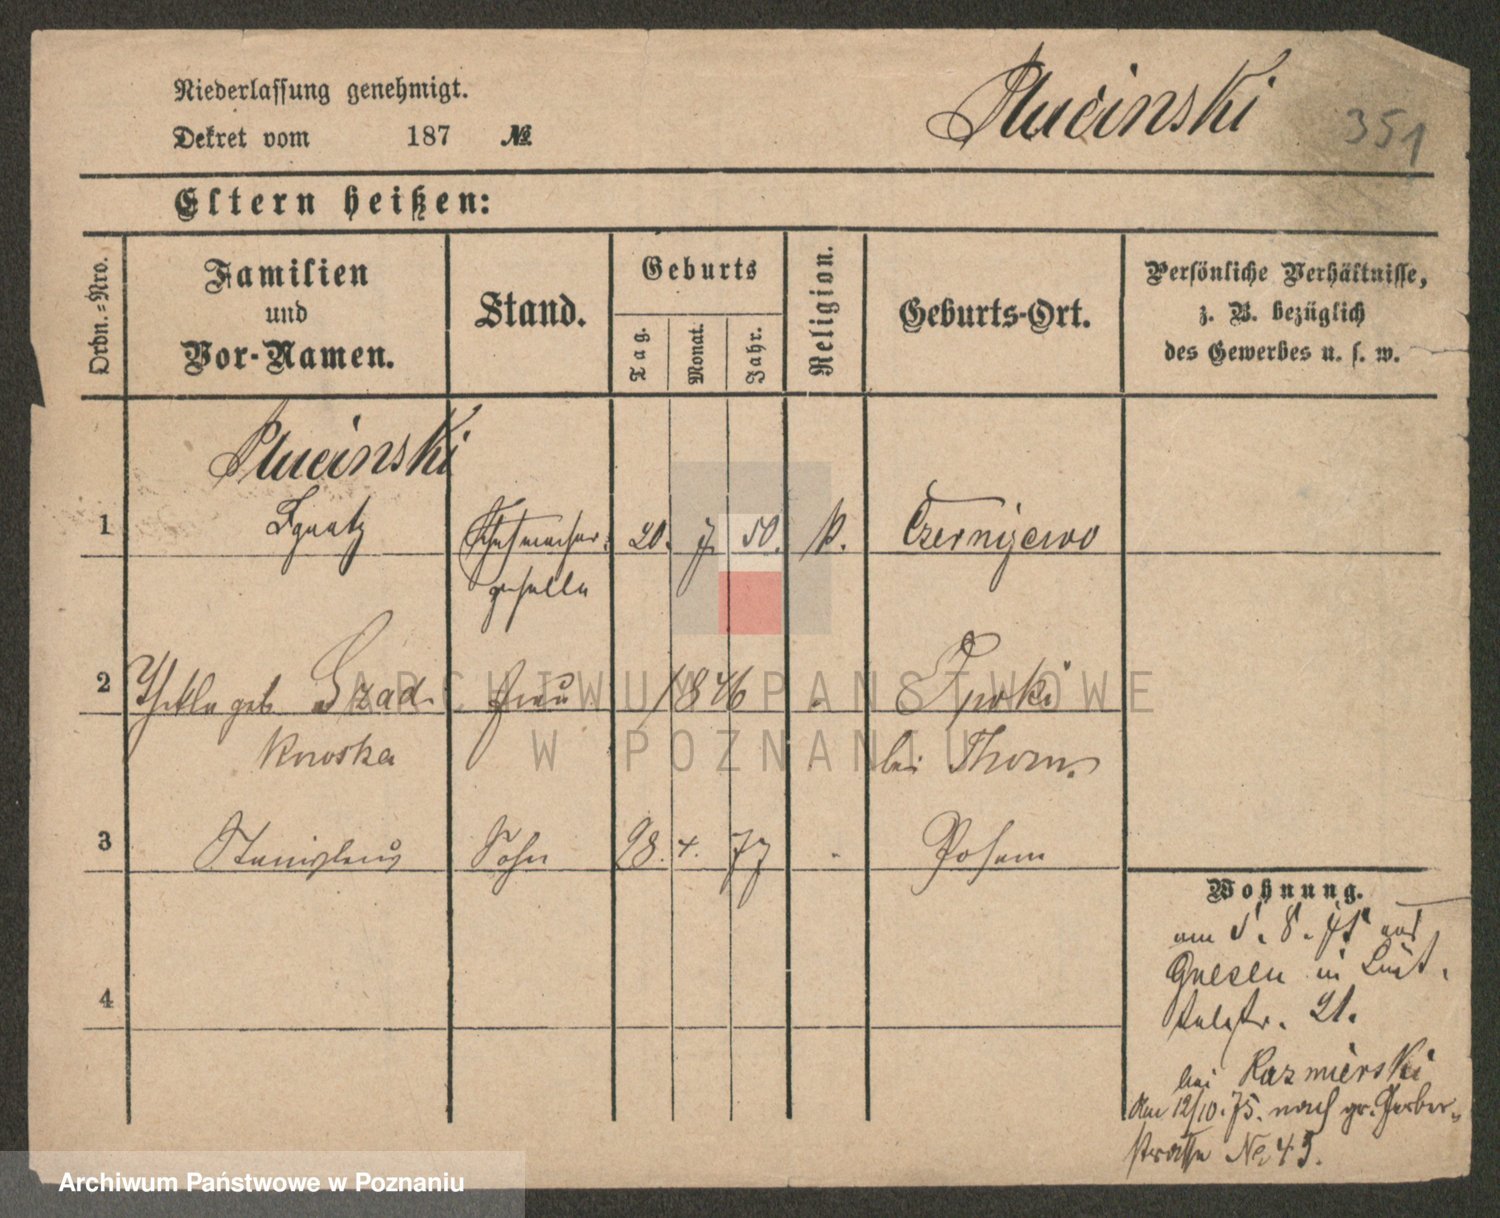 Niederlassung genehmigt.
Plucinski
351
Dekret vom 187 №
Eltern heißen:
Ordn.-Nro.
Familien
und
Vor-Namen.
Stand.
Geburts
Tag.
Monat.
Jahr.
Religion.
Geburts-Ort.
Persönliche Verhältnisse,
z. B. bezüglich
des Gewerbes u. s. w.
Plucinski
1 Ignatz 20. 7. 50. k. Czernijewo
geselle
2 Thekla geb. Szad- Frau 1846
kowska bei Thorn.
3 Stanislaus Sohn 28. 4. 77 Posen
4
Wohnung.
am 5. 8. 75 aus
Gnesen in
21.
bei Kazmierski
Am 12/10. 75. nach gr. Gerber-
strasse No 45.
ARCHIWUM PAŃSTWOWE
W POZNANIU
Archiwum Państwowe w Poznaniu